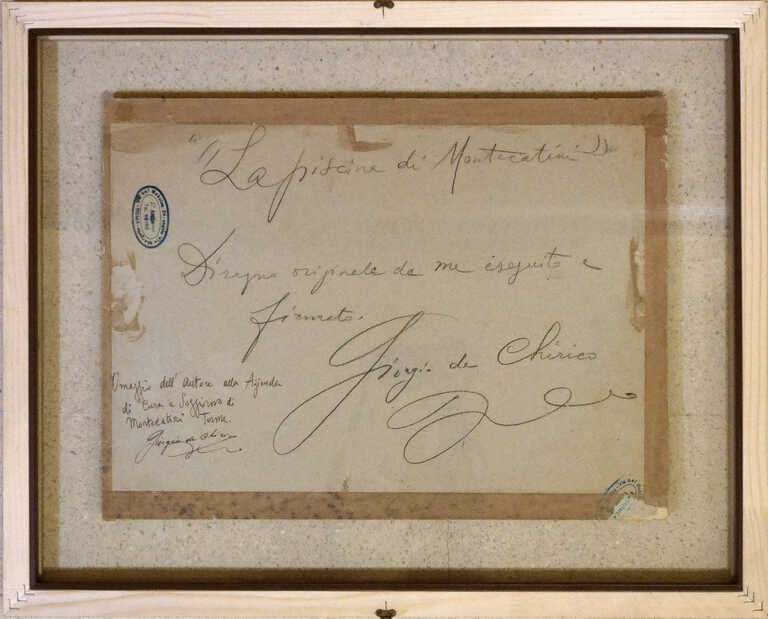 "La piscina di Montecatini"
Disegno originale da me eseguito e
firmato.
Giorgio de Chirico
Omaggio dell'Autore alla Azienda
di "Cura e Soggiorno di
Montecatini" Terme.
Giorgio de Chirico